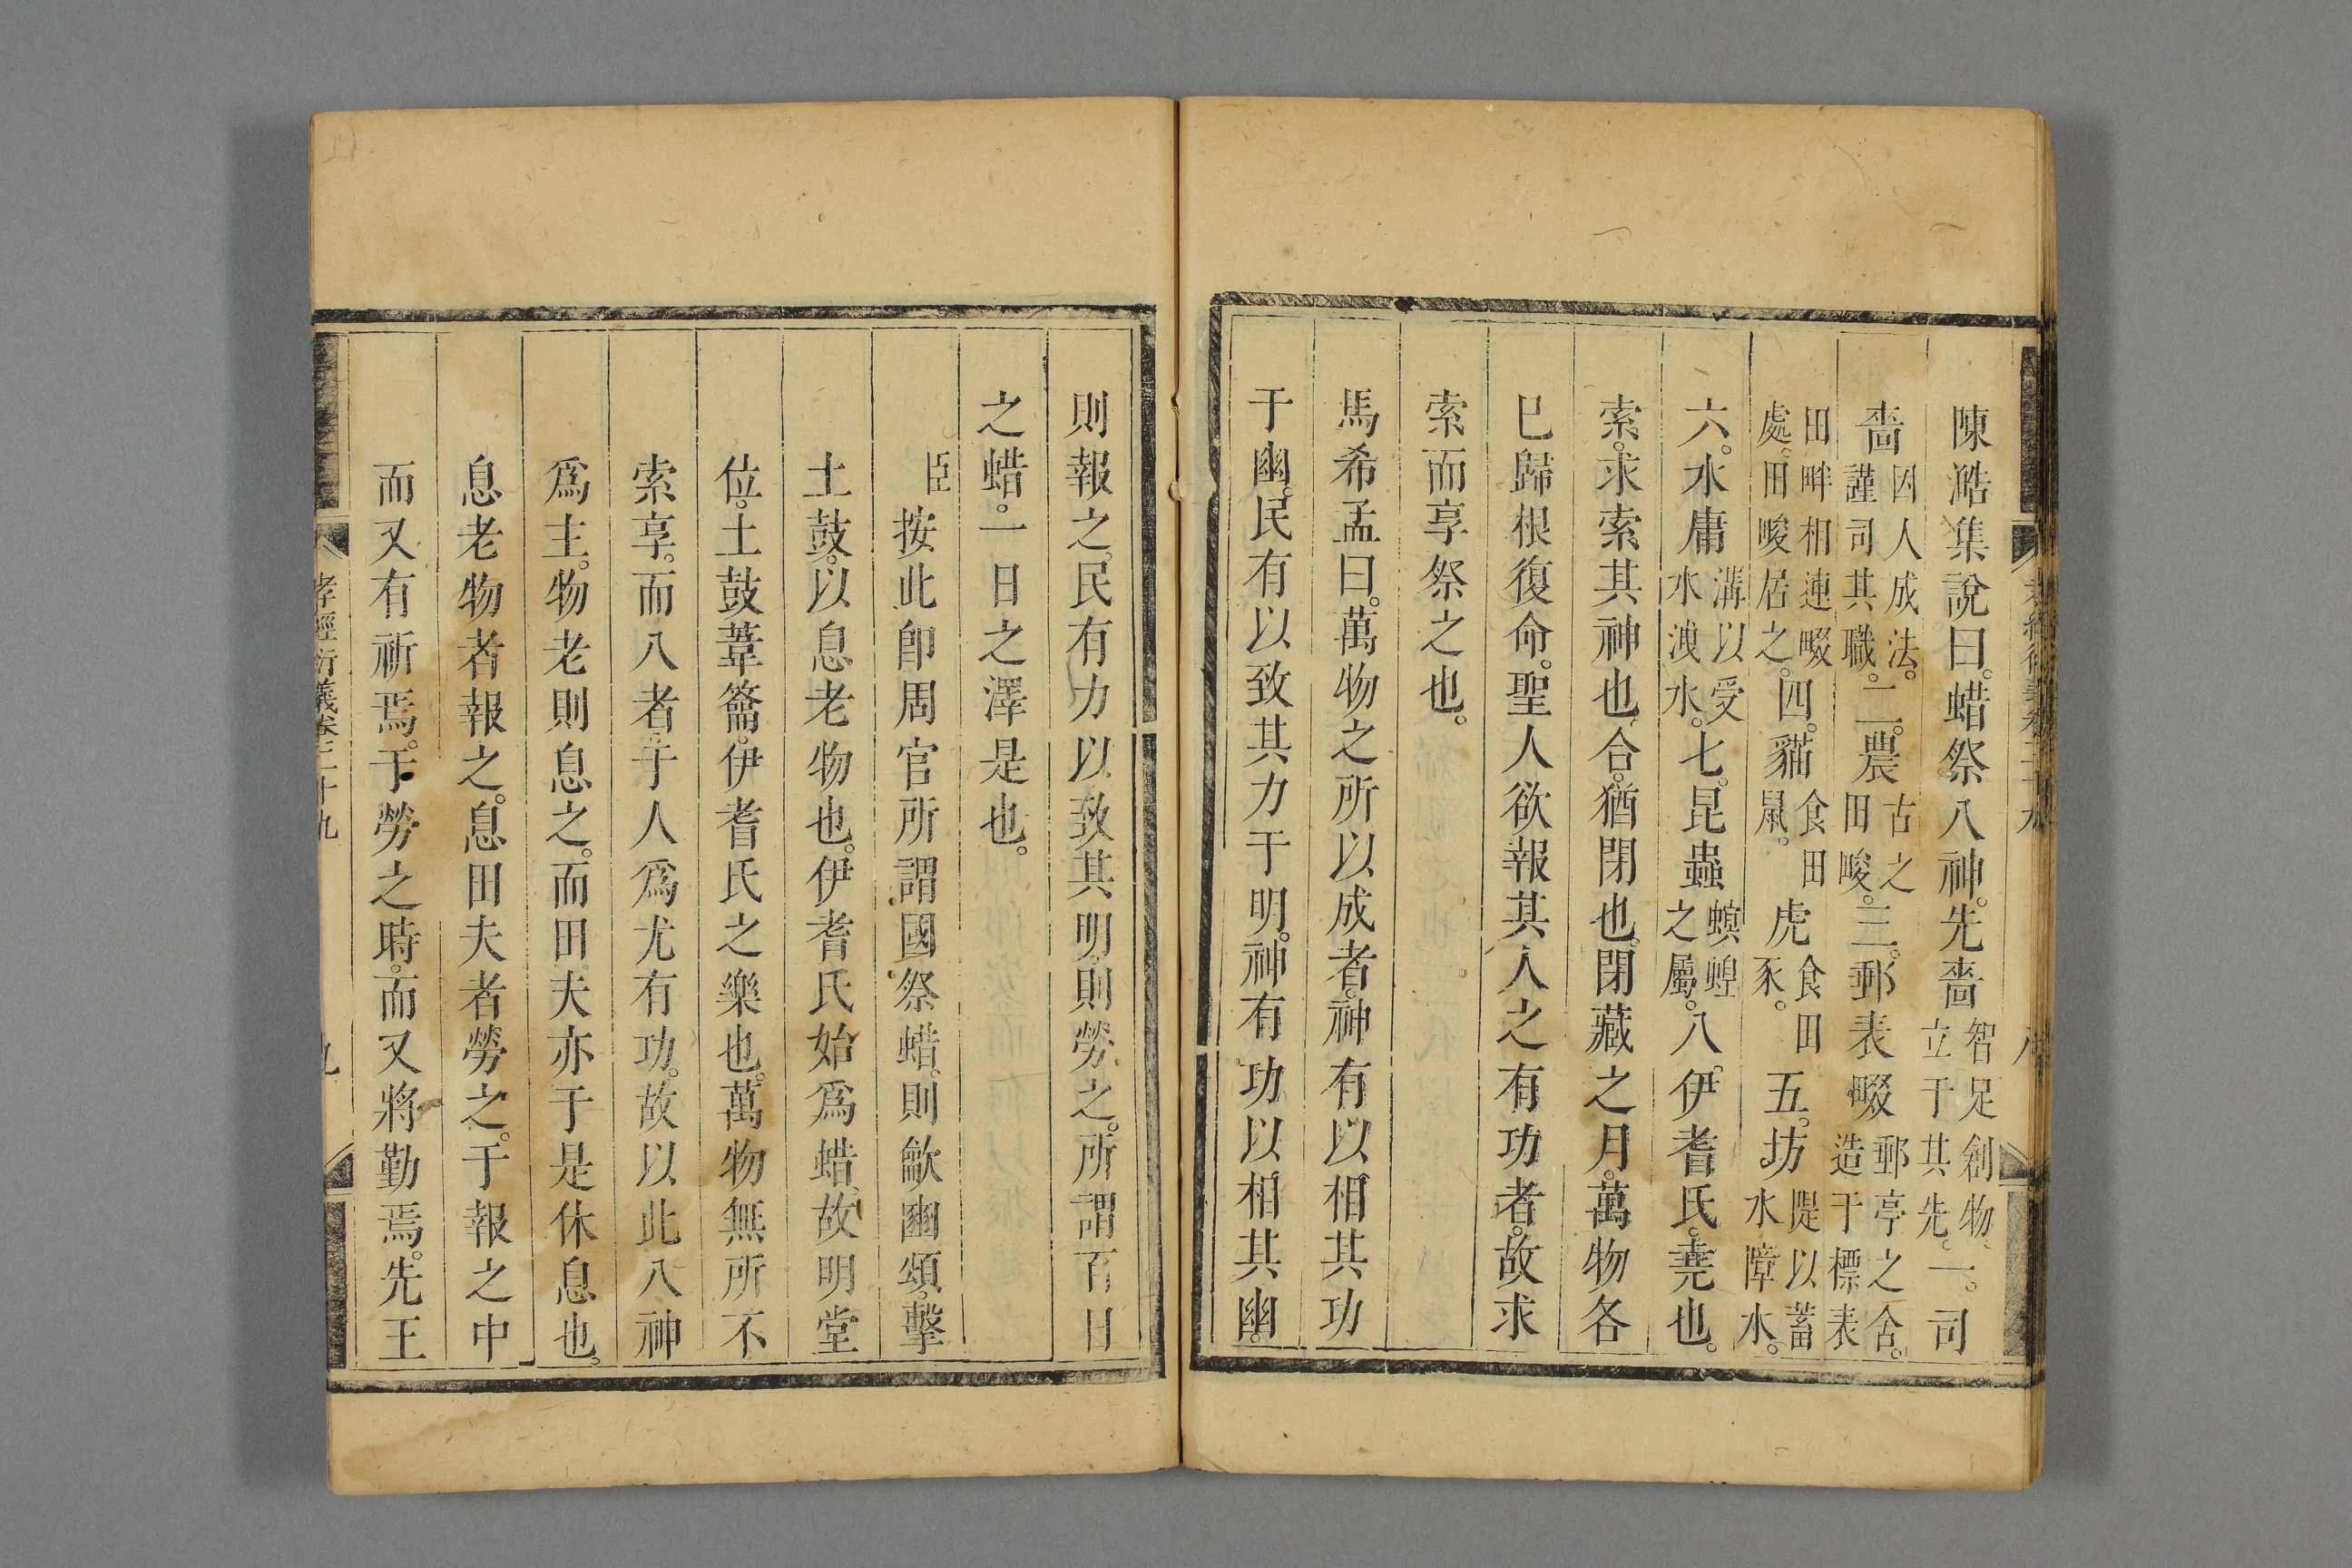 陳澔集說曰。蜡祭八神。先嗇智足創物。立于其先。一。司
嗇因人成法。謹司其職。二。農古之田畯。三。郵表畷郵亭之舍。造于標表
田畔相連畷處。田畯居之。四。貓食田鼠。虎食田豕。五。坊隄以蓄水障水。
六。水庸溝以受水洩水。七。昆蟲螟蝗之屬。八。伊耆氏。堯也。
索。求索其神也。合。猶閉也。閉藏之月。萬物各
已歸根復命。聖人欲報其人之有功者。故求
索而享祭之也。
馬希孟曰。萬物之所以成者。神有以相其功
于幽。民有以致其力于明。神有功以相其幽。
則報之。民有力以致其明。則勞之。所謂百日
之蜡。一日之澤是也。
臣按此卽周官所謂國祭蜡。則龡豳頌。擊
土鼓。以息老物也。伊耆氏始爲蜡。故明堂
位。土鼓葦籥。伊耆氏之樂也。萬物無所不
索享。而八者于人爲尤有功。故以此八神
爲主。物老則息之。而田夫亦于是休息也。
息老物者報之。息田夫者勞之。于報之中
而又有祈焉。于勞之時。而又將勤焉。先王
孝經衍義卷三十九
九